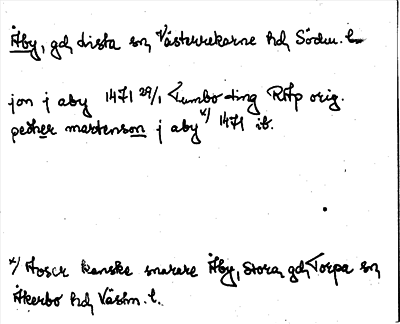 Åby, gd, Lista sn, Västerrekarne hd, Söderm. l.
jon j aby 1471 29/1 Tumbo ting RAp orig.
pedher mardtenson j aby x/ 1471 ib.
x/ Avser kanske snarare Åby, Stora, gd, Torpa sn,
Åkerbo hd, Västm. l.